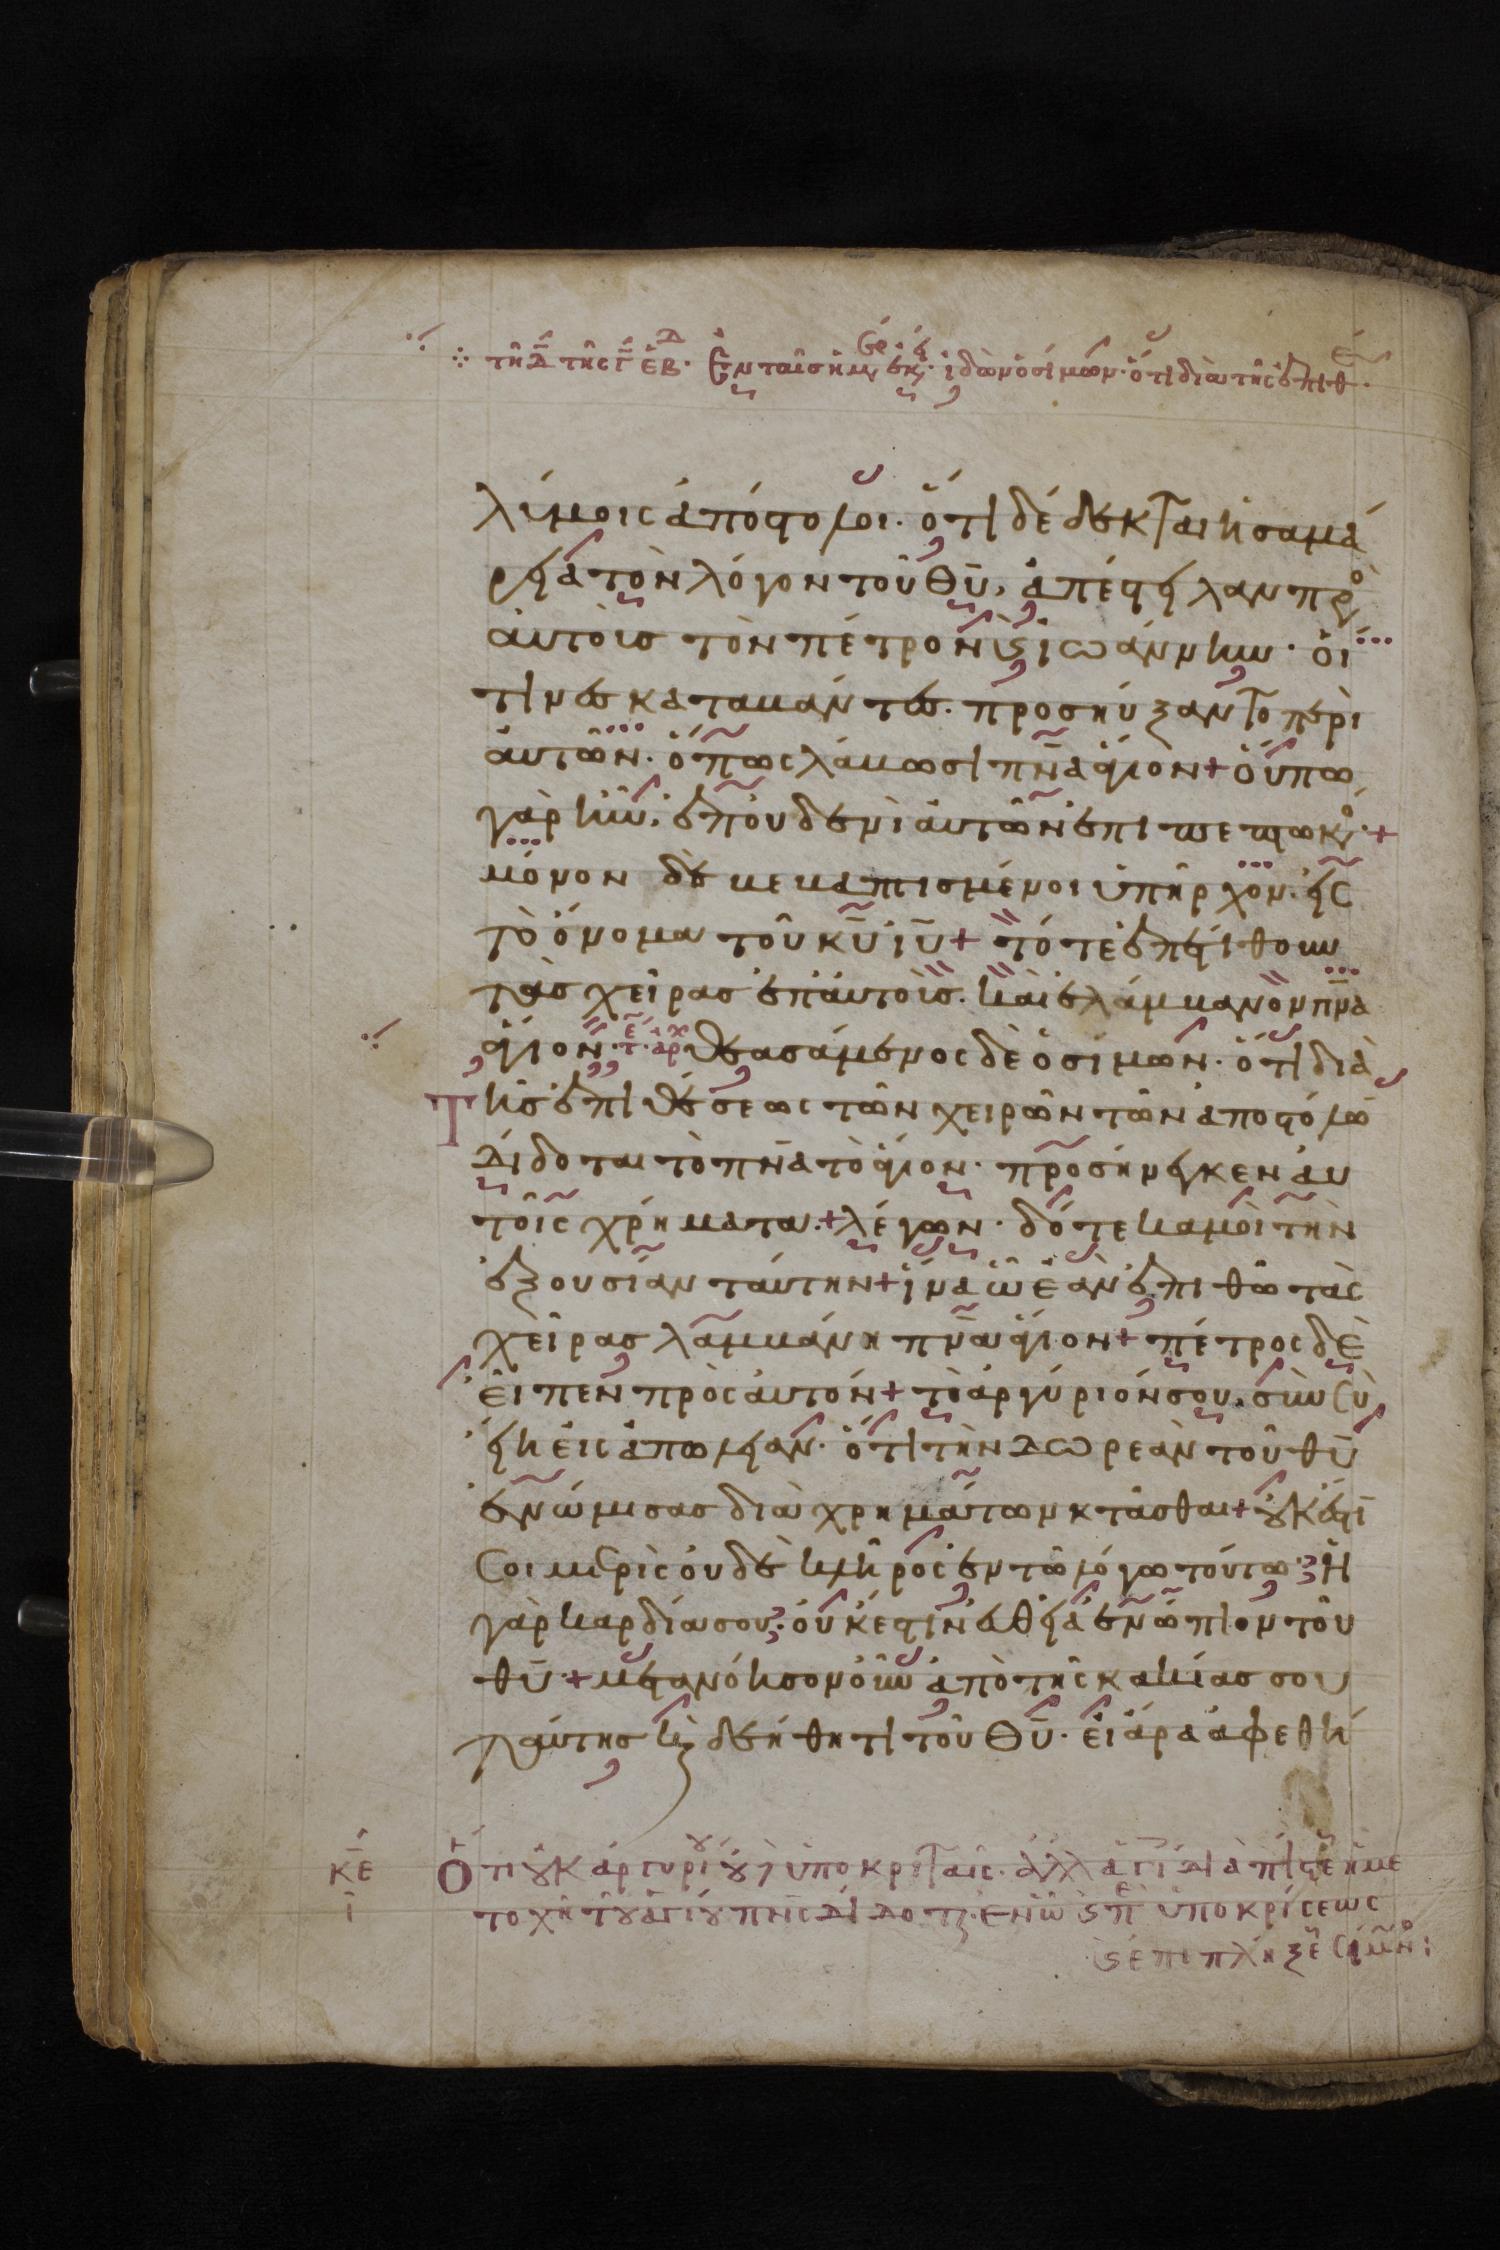 τῆ δ̅ τῆς γ̅ ἑβδ. Ἐν ταῖς ἡμέραις ἐκείναις· ἰδὼν ὁ σίμων· ὅτι διὰ τῆς ἐπιθέ.
λύμοις ἀπόστολοι· ὅτι δέδεκται ἡ σαμά
ρεια τὸν λόγον τοῦ θ̅υ̅, ἀπέστειλαν πρὸς
αὐτοὺς τὸν πέτρον ϗ ἰωάννην· οἵ
τινες καταβάντες· προσηύξαντο περὶ
αὐτῶν· ὅπως λάβωσι π̅ν̅α̅ ἅγιον + οὔπω
γὰρ ἦν, ἐπ' οὐδενὶ αὐτῶν ἐπιπεπτωκός· +
μόνον δὲ βεβαπτισμένοι ὑπῆρχον· εἰς
τὸ ὄνομα τοῦ κ̅υ̅ ἰ̅υ̅ + τότε ἐπετίθουν
τὰς χεῖρας ἐπ' αὐτοὺς· καὶ ἐλάμβανον π̅ν̅α̅
ἅγιον· τε. ἀρχ θεασάμενος δὲ ὁ σίμων· ὅτι διὰ
Τῆς ἐπιθέσεως τῶν χειρῶν τῶν ἀποστόλω̅
δίδοται τὸ π̅ν̅α̅ τὸ ἅγιον· προσήνεγκεν αὐ
τοῖς χρήματα· + λέγων· δότε καμοὶ τὴν
ἐξουσίαν ταύτην + ἵνα ὧ ἐὰν ἐπιθῶ τὰς
χεῖρας λαμβάνη π̅ν̅α̅ ἅγιον + πέτρος δὲ
εἶπεν πρὸς αὐτόν + τὸ ἀργύριόν σου, σὺν σὺ
εἴη εἰς ἀπώλειαν· ὅτι τὴν δωρεὰν τοῦ θ̅υ̅
ἐνόμισας διὰ χρημάτων κτᾶσθαι + οὐκ ἔστι
σοι μερὶς οὐδὲ κλῆρος ἐν τῶ λόγω τούτω· ἡ
γὰρ καρδία σου· οὐκ ἔστιν εὐθεῖα ἐνώπιον τοῦ
θ̅υ̅· + μετανόησον οὖν ἀπὸ τῆς κακίας σου
ταύτης ϗ δεήθητι τοῦ θ̅υ̅· εἰ ἄρα ἀφεθή
κε Ὅτι οὐκ ἀργυρίου οὐδ ὑποκριταῖς· ἀλλ ἁγίοις διὰ πίστεως ἡ με
ι τοχὴ τοῦ ἁγίου πν̅ς δίδοται· ἐν ὧ ϗ περὶ ὑποκρίσεως
ϗ ἐπιπλήξεως σίμωνος: